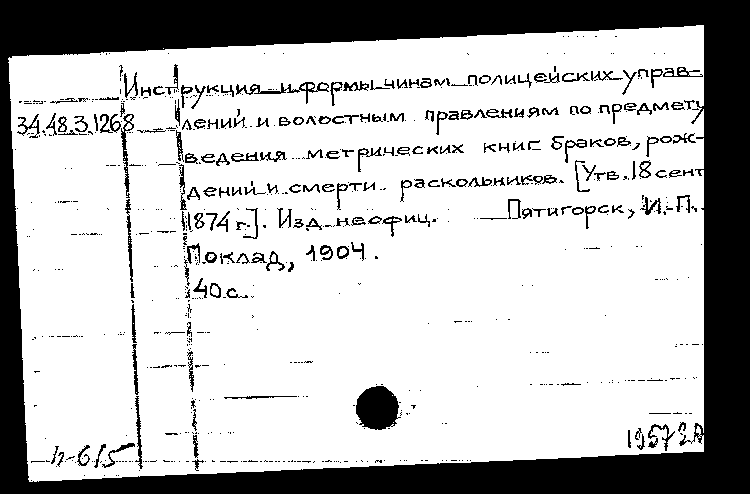 Инструкция и формы чинам полицейских управ-
34.48.3.1268 лений и волостным правлениям по предмету
ведения метрических книг браков, рож-
дений и смерти раскольников. [Утв. 18 сент
1874 г.]. Изд. неофиц. Пятигорск, И. П.
Поклад, 1904.
40 с.
п-615